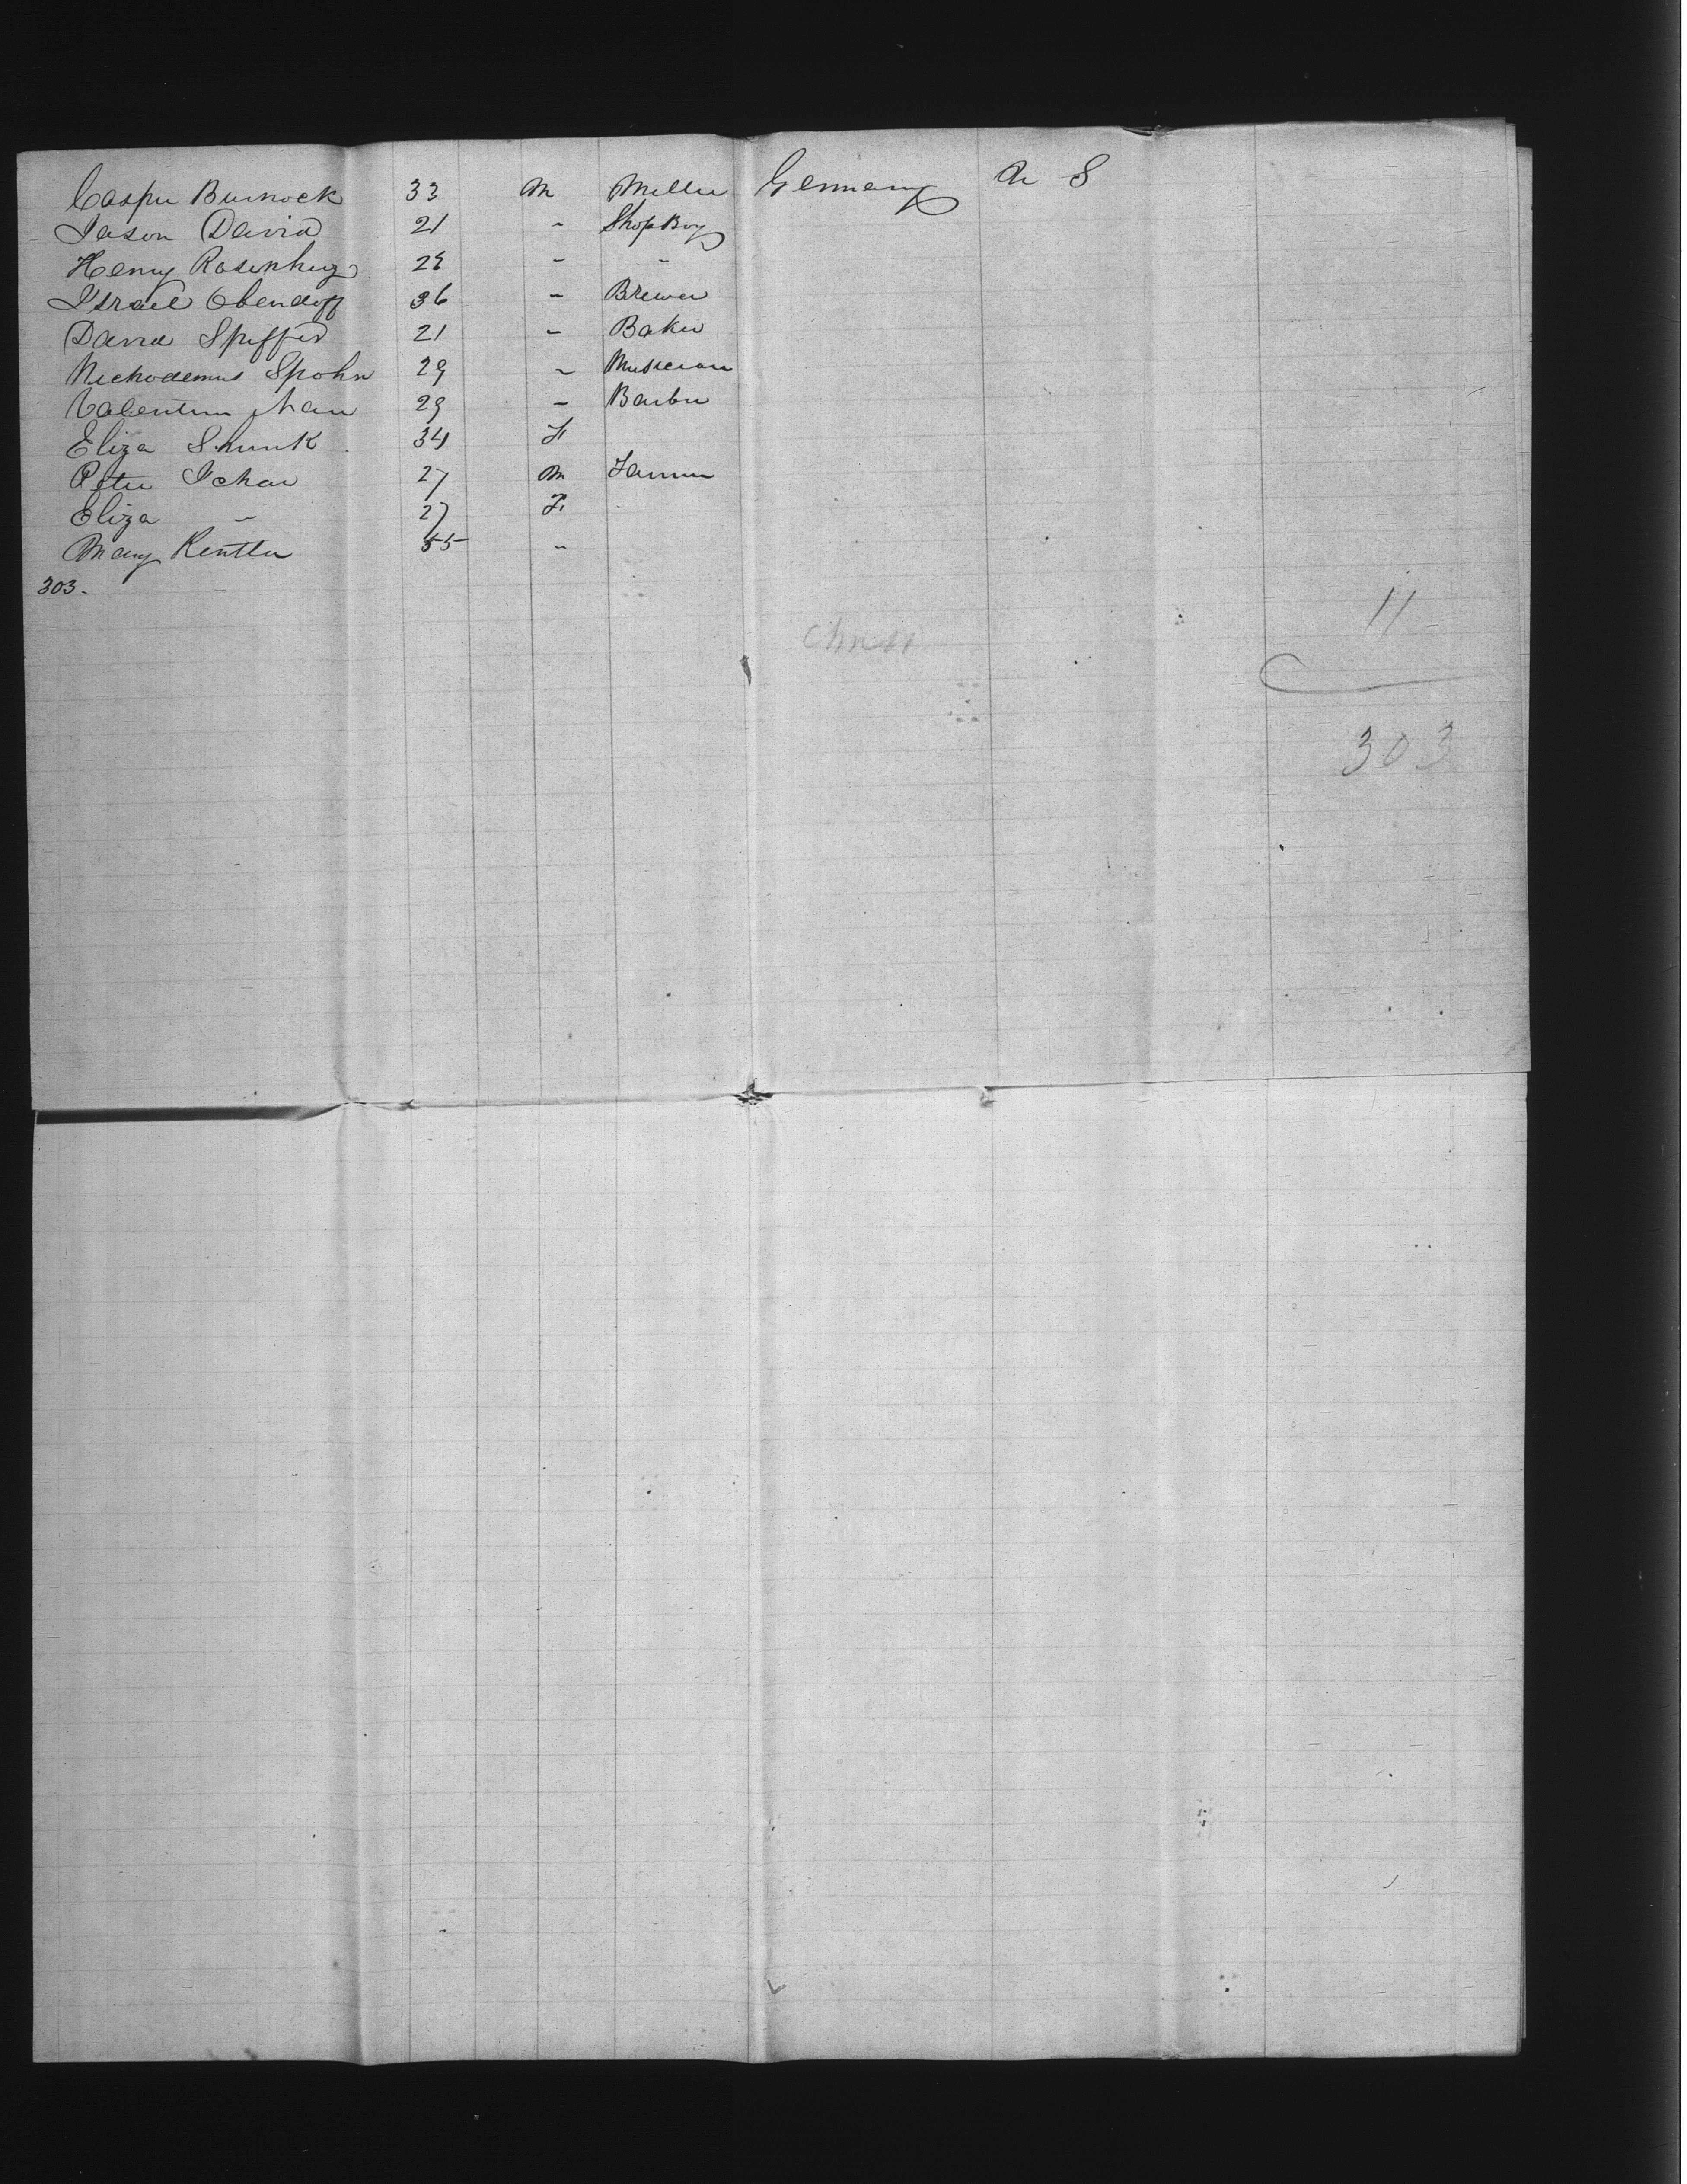 Casper Burnock 33 M Miller Germany U S
Jason David 21 " Shop Boy
Henry Rosenberg 28 " "
Israel Obendoff 36 " Brewer
David Speffer 21 " Baker
Nichodemus Spohn 29 " Musician
Valentin 29 " Barber
Eliza Shunk 34 F
Peter Schau 27 M Farmer
Eliza " 27 F
Mary Kentler 55 "
303.
11
303